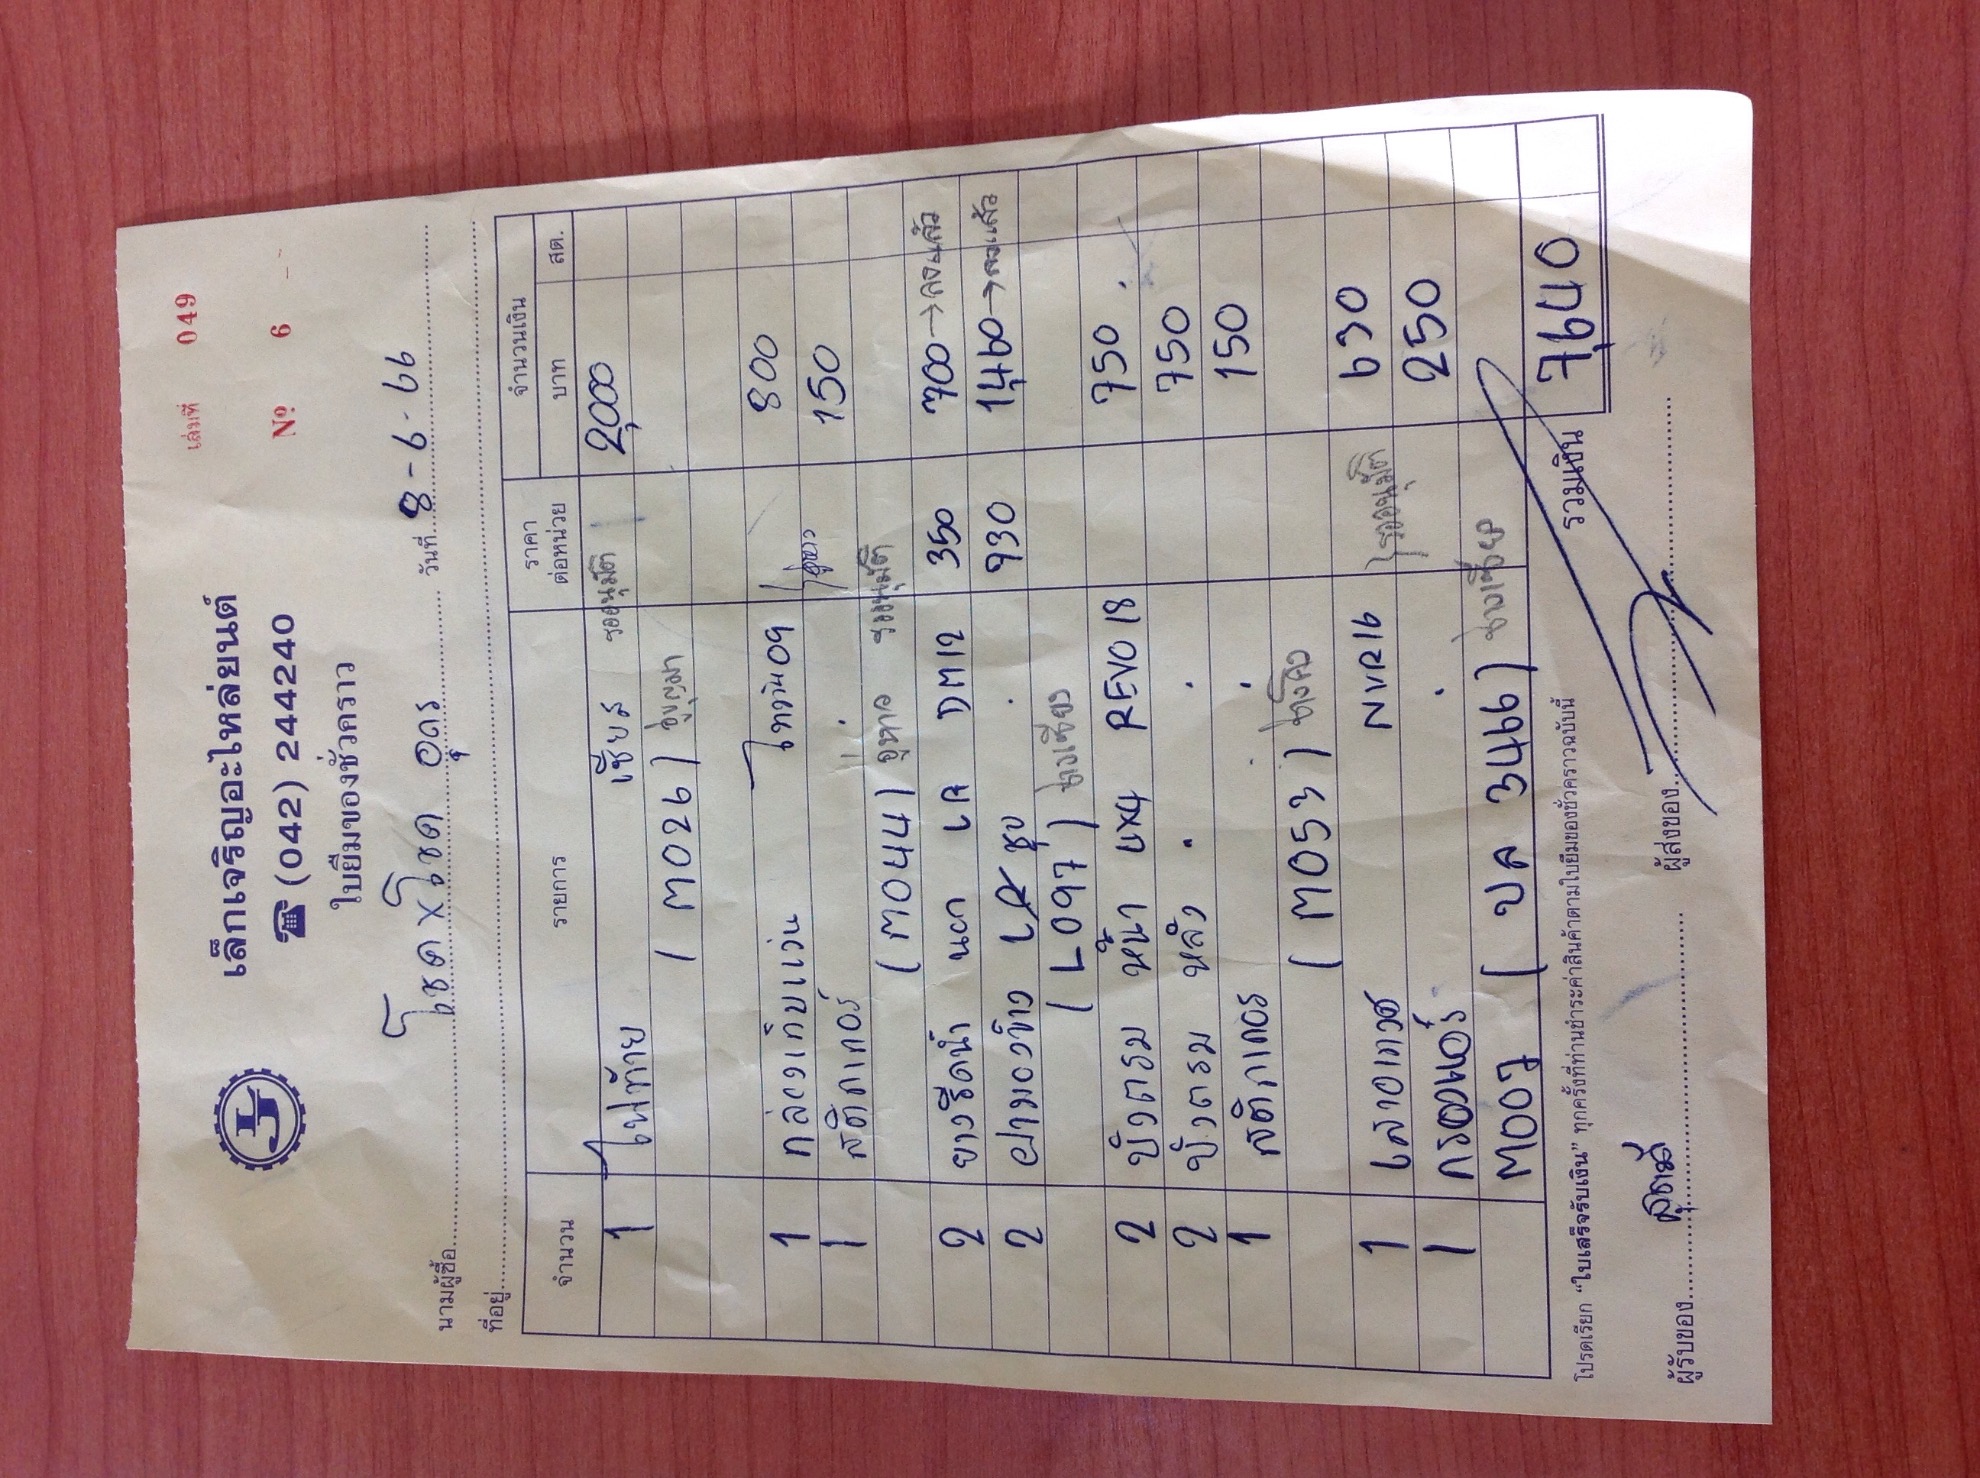 เล่มที่ 049
เล็กเจริญอะไหล่ยนต์
☎ (042) 244240
Nº 6
ใบยืมของชั่วคราว
นามผู้ซื้อ โชค x โชค อุดร วันที่ 8-6-66
ที่อยู่
จำนวน รายการ ราคาต่อหน่วย จำนวนเงิน
บาท สต.
1 ไฟท้าย รออนุมัติ 2,000
(M026)
1 กล่องเก็บแว่น ไทเกอร์ 09 800
1 สติกเกอร์ 150
(M044) รออนุมัติ
2 ยางรีดน้ำ LR DM12 350 700 → ลงแล้ว
2 ฝามองข้าง LR ชุบ 730 1,460 → ลงแล้ว
(L097) ช่างเซียง
2 บังตรม หน้า 4x4 REVO 18 750
2 บังตรม หลัง 750
1 สติกเกอร์ 150
(M053)
1 สายเกวศ NVR16 รออนุมัติ 630
1 กรองแอร์ 250
M007 (บล 3466)
รวมเงิน 7,640
โปรดเรียก “ใบเสร็จรับเงิน” ทุกครั้งที่ท่านชำระค่าสินค้าตามใบยืมของชั่วคราวฉบับนี้
ผู้รับของ ผู้ส่งของ